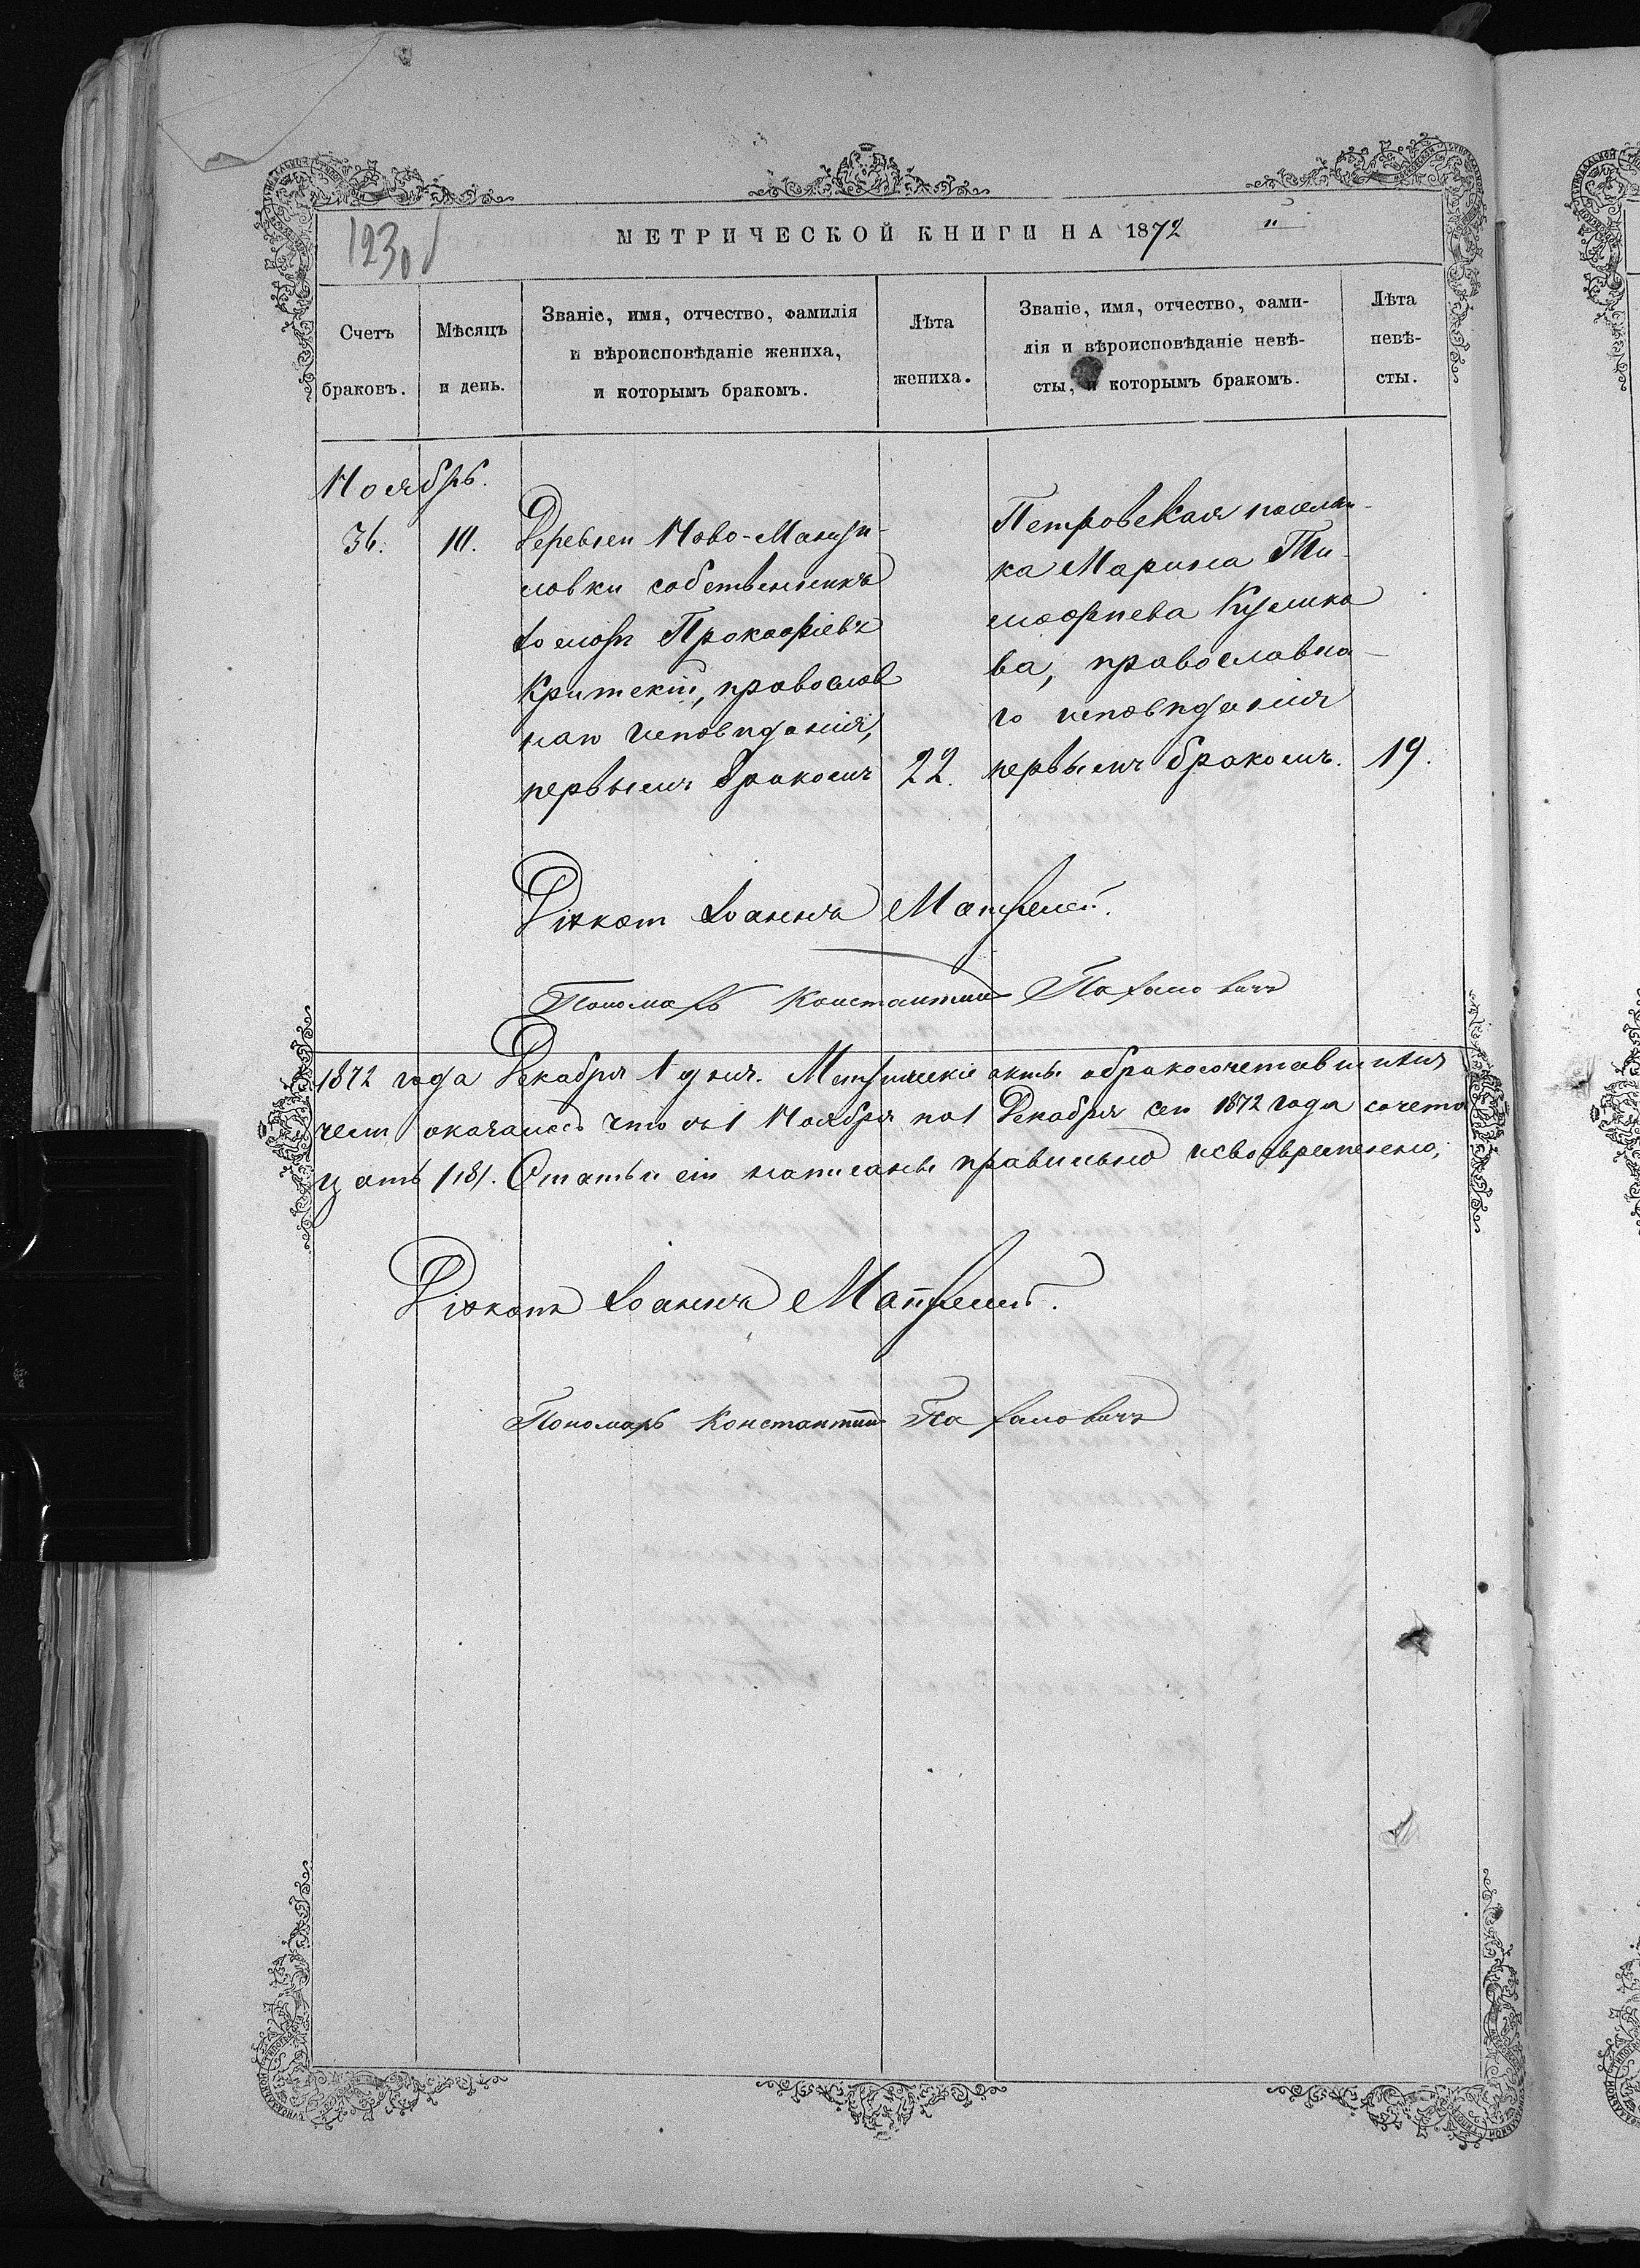 МЕТРИЧЕСКОЙ КНИГИ НА 1872
Счетъ браковъ.
Мѣсяцъ и день.
Званіе, имя, отчество, фамилія
и вѣроисповѣданіе жениха,
и которымъ бракомъ.
Лѣта жениха.
Званіе, имя, отчество, фами-
лія и вѣроисповѣданіе невѣ-
сты, и которымъ бракомъ.
Лѣта невѣ-
сты.
Ноябрь.
36. 10.
Деревни Ново-Мануи-
ловки собственникъ
Прокофіевъ
Критскій, православ
наго исповѣданія,
первымъ бракомъ 22.
Петровская поселян-
ка Марина Ти-
моѳеева
ва, православна-
го исповѣданія
первымъ бракомъ. 19.
Діяконъ Іоаннъ
Пономарь Константинъ
1872 года Декабря 1 дня. Метрическіе акты
оказалось что съ 1 Ноября по 1 Декабря сего 1872 года
Статьи сіи написаны правильно и своевременно,
Діяконъ Іоаннъ
Пономарь Константинъ